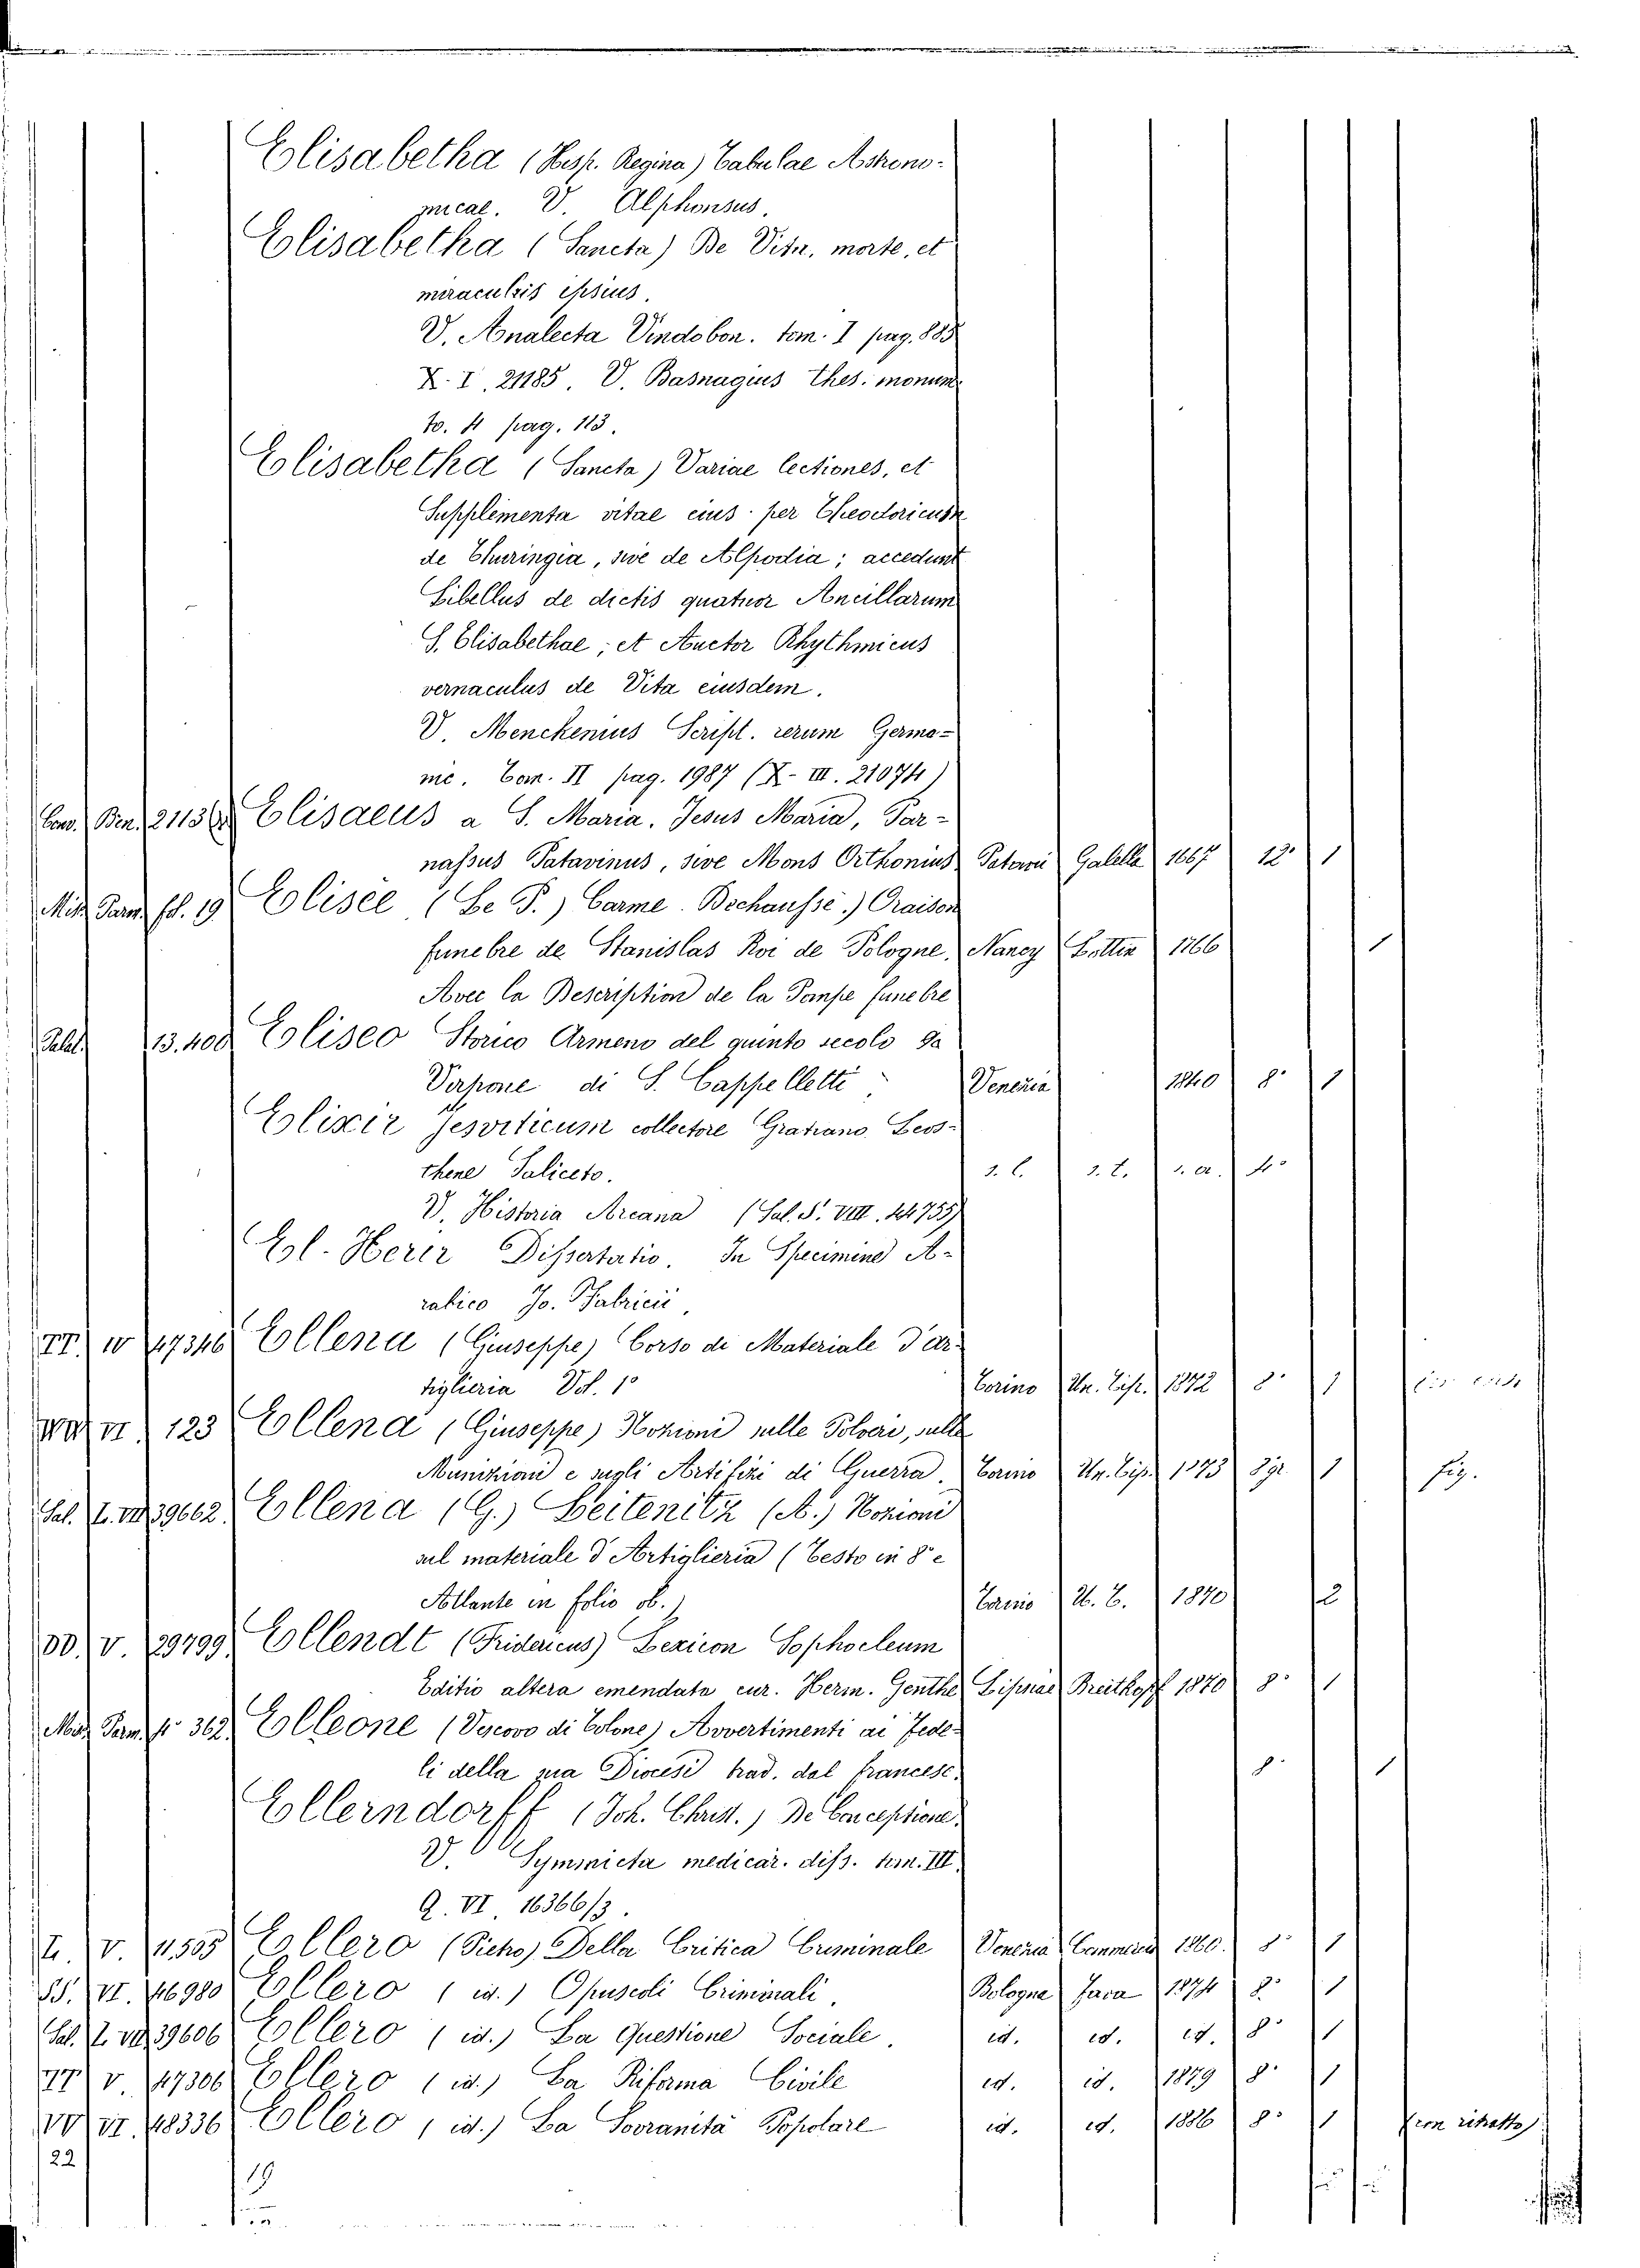 Elisabetha (Hesp. Regina) Tabulae Astrono-
micae. V. Alphonsus.
Elisabetha (Sancta) De Vita, morte, et
miraculis ipsius.
V. Analecta Vindobon. tom. I pag. 885
X. I. 21185. V. Basnagius thes. monum
to. 4 pag. 113.
Elisabetha (Sancta) Variae lectiones, et
Supplementa vitae eius per Theodoricum
de Thuringia, sive de Alpodia; accedunt
Libellus de dictis quatuor Ancillarum
S. Elisabethae; et Auctor Rhythmicus
vernaculus de Vita eiusdem.
V. Menckenius Script. rerum Germa-
nic. Tom. II pag. 1987 (X- III. 21074)
Conv. Ben. 21136 Elisaeus a S. Maria. Jesus Maria, Par-
nassus Patavinus, sive Mons Orthonius Patavii Galella 1667 12° 1
Misc. Parm. fol. 19 Elisee (Le P.) Carme. Dechausse.) Oraison
funebre de Stanislas Roi de Pologne, Nancy Lottin 1766 1
Avec la Description de la Pompe funebre
Palat. 13.400 Eliseo Storico Armeno del quinto secolo da
Verpone di S. Cappelletti Venezia 1840 8° 1
Elixir Jesuiticum collectore Gratiano Leos-
thene Saliceto. s. l. s. t. s. a. 4°
V. Historia Arcana (Sal. S. VIII. 44755)
El. Herir Dissertatio. In Specimine A-
rabico Jo. Fabricii.
TT. IV 47346 Ellena (Giuseppe) Corso di Materiale d'ar-
tiglieria Vol. 1° Torino Un. Tip. 1872 8° 1
VI 123 Ellena (Giuseppe) Nozioni sulle Polveri, sulle
Munizioni e sugli Artifizi di Guerra. Torino Un. Tip. 1873 8gr. 1 fig.
Sal. L. VII 39662 Ellena (G.) Leitenitz (A.) Nozioni
sul materiale d'Artiglieria (Testo in 8° e
Atlante in folio ob.) Torino U. T. 1870 2
DD. V. 29799 Ellendt (Fridericus) Lexicon Sophocleum
Editio altera emendata cur. Herm. Genthe Lipsiae Breitkopf 1870 8° 1
Misc. Parm. f° 362 Elleone (Vescovo di Tolone) Avvertimenti ai Fede-
li della sua Diocesi trad. dal francese. 8° 1
Ellerndorff (Joh. Christ.) De Conceptione.
V. Symmicta medicar. diss. tom. III.
Q. VI. 16366/3.
L. V. 11.505 Ellero (Pietro) Della Critica Criminale Venezia Commercio 1860. 8° 1
SS. VI. 46980 Ellero (id.) Opuscoli Criminali. Bologna Fava 1874 8° 1
Sal. L. VII 39606 Ellero (id.) La Questione Sociale. id. id. id. 8° 1
TT V 47306 Ellero (id.) La Riforma Civile id. id. 1879 8° 1
VV VI. 48336 Ellero (id.) La Sovranità Popolare id. id. 1886 8° 1 (con ritratto)
22
19